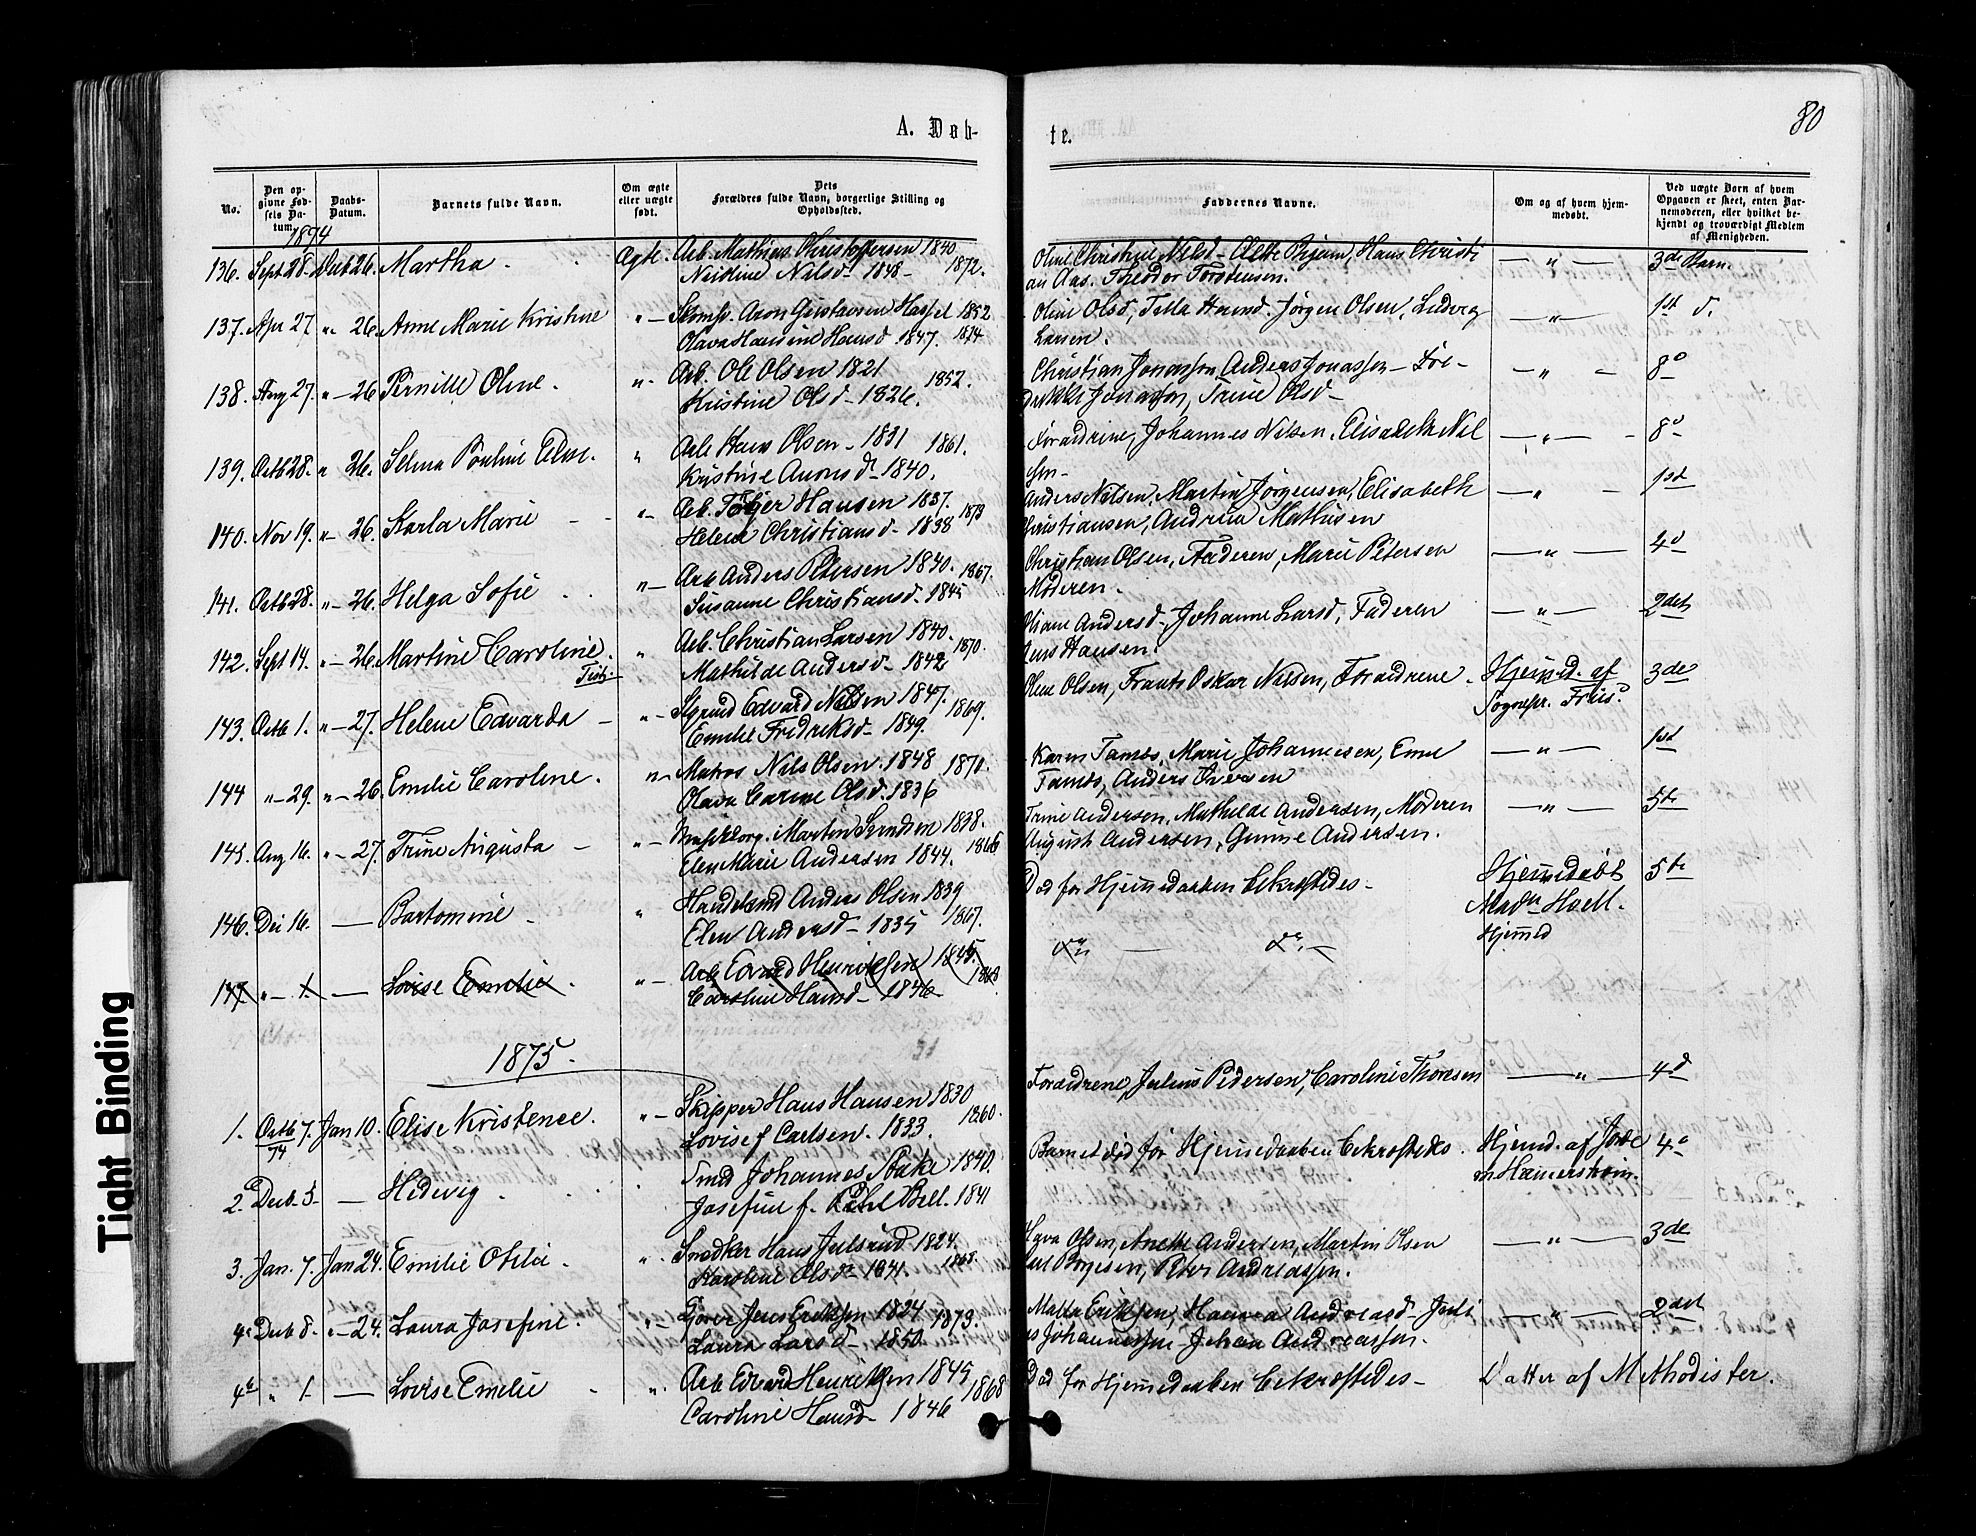 80
A. Døb-
te.
No.
Den op-
givne Fød-
sels Da-
tum.
Daabs-
Datum.
Barnets fulde Navn.
Om ægte
eller uægte
født.
Dets
Forældres fulde Navn, borgerlige Stilling og
Opholdssted.
Faddernes Navne.
Om og af hvem hjem-
medøbt.
Ved uægte Børn af hvem
Opgaven er skeet, enten Bar-
nemoderen, eller hvilket be-
kjendt og troværdigt Medlem
af Menigheden.
1874
136. Sept 28. Decb 26. Martha. Ægte. Arb. Mathias Christophersen 1840
Nils d. 1848 - 1872.
Oline Christine Nilsd - Hans Christi
an Aas. Theodor Torstensen.
— " — 3de Barn.
137. Apr 27. " 26. Anne Marie Kristine " — Aron Gustavsen 1852
Olava Handine Hansd 1847. 1874
Oline Olsd, Jørgen Olsen, Ludvig
Larsen.
— " — 1st d.
138. Aug 27. " — 26 Pernille Oline. " Arb. Ole Olsen 1821
Kristine Olsd - 1826. 1852.
Christian Jonassen, Anders Jonassen - Fre-
drikke Jonassen, Trine Olsd -
— " — 8d
139. Octb 28. " 26. Selma Pauline Eline. " Arb Hans Olsen - 1831 1861.
Kristine Amunds d - 1840.
Forældrene, Johannes Nilsen, Elisabeth Nil
sen -
— " — 8d
140. Nov 19. " — 26. Karla Marie " — Arb. Hansen 1837.
Helene Christians d - 1838 1873
Anders Nilsen, Martin Jørgensen, Elisabeth
Christiansen, Andrine Mathisen
— " — 1st
141. Octb 28. " — 26. Helga Sofie " — Arb Anders Petersen 1840. 1867.
Susanne Christians d. 1845
Christian Olsen, Faderen, Marie Petersen
Moderen.
— " — 4d
142. Sept 14. " — 26. Martine Caroline. " Arb. Christian Larsen 1840. 1870.
Mathilde Anders d - 1842
Andersd - Johanne Larsd, Faderen
Jens Hansen.
— " — 2det
143. Octb 1. " — 27. Helene Edvarda — " — Sigvud Edvard Nilsen 1847. 1869.
Emilie Fridriksd - 1849.
Oline Olsen, Frants Oskar Nilsen, Forældrene.
Hjemmd. af
Sognepr. Friis.
3de
144 " — 29. " — 26. Emilie Caroline. " — Matros Nils Olsen. 1848 1870.
Olava Carine Ols d. 1836
Karen Tambs, Marie Johannesen,
Tambs, Anders Iversen
— " — 1st
145. Aug 16. " — 27. Trine Augusta — " — Martin Svendsen 1838.
Elen Marie Andersen 1844. 1866
Trine Andersen, Mathilde Andersen, Moderen
August Andersen, Andersen.
— " — 5te
146. — Bartomine - " Handelsmd Anders Olsen 1839
Elen Anders d - 1835 1867.
Død før Hjemmedaaben bekræftedes -
Hjemmedøbt
Madm Hoell.
5te
147. " — 1. — Lovise Emilie. " — Arb Edvard Henriksen 1845.
Caroline Hansd - 1846 1868
do — do —
Hjemmd
1875.
1. Octb 7. Jan 10. Elise Kristence. " — Skipper Hans Hansen 1830
74 Lovise f Carlsen. 1833. 1860.
Forældrene, Julius Pedersen, Caroline Thoresen
— " — 4d
2. Decb 3. — Hedevig. Smed Johannes Aske 1840.
Josefine f. Bell. 1841
Barnet død før Hjemmedaaben bekræftedes.
Hjemmd. af Jorde
m Hammerstrøm.
4d
3. Jan. 7. Jan 24. Emilie Otilie. " Snedker Hans Julsrud 1824.
Karoline Olsd - 1841. 1868.
Olsen, Anette Andersen, Martin Olsen
Børgesen, Peter Andreassen.
— " — 3de
4a Decb 8. " — 24. Laura Josefine. " — Jens Eriksen 1824 1873.
Laura Larsd - 1850.
Malta Eriksen, Hanna Andreasd - Juli
us Johannessen - Johan Andreassen.
— " — 2det
4b " 1. — Lovise Emelie . " Arb Edvard Henriksen 1845 1868
Caroline Hansd - 1846
Død før Hjemmedaaben bekræftedes -
Datter af Methodister.
Tight Binding